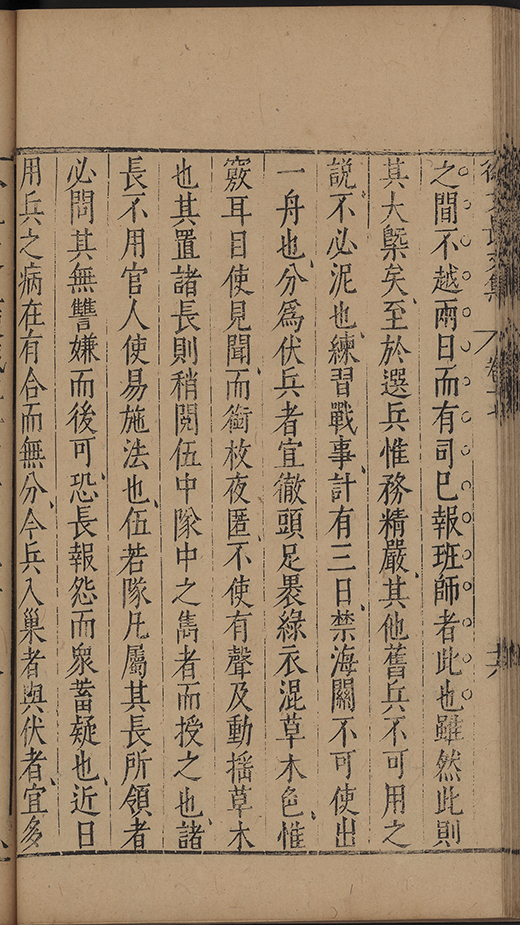 徐文長文集 卷十七 十六
之間不越兩日而有司已報班師者此也雖然此則
其大槩矣至於選兵惟務精嚴其他舊兵不可用之
說不必泥也練習戰事計有三日禁海關不可使出
一舟也分爲伏兵者宜徹頭足裹綠衣混草木色惟
竅耳目使見聞而銜枚夜匿不使有聲及動搖草木
也其置諸長則稍閱伍中隊中之雋者而授之也諸
長不用官人使易施法也伍若隊凡屬其長所領者
必問其無讐嫌而後可恐長報怨而衆蓄疑也近日
用兵之病在有合而無分今兵入巢者與伏者宜多